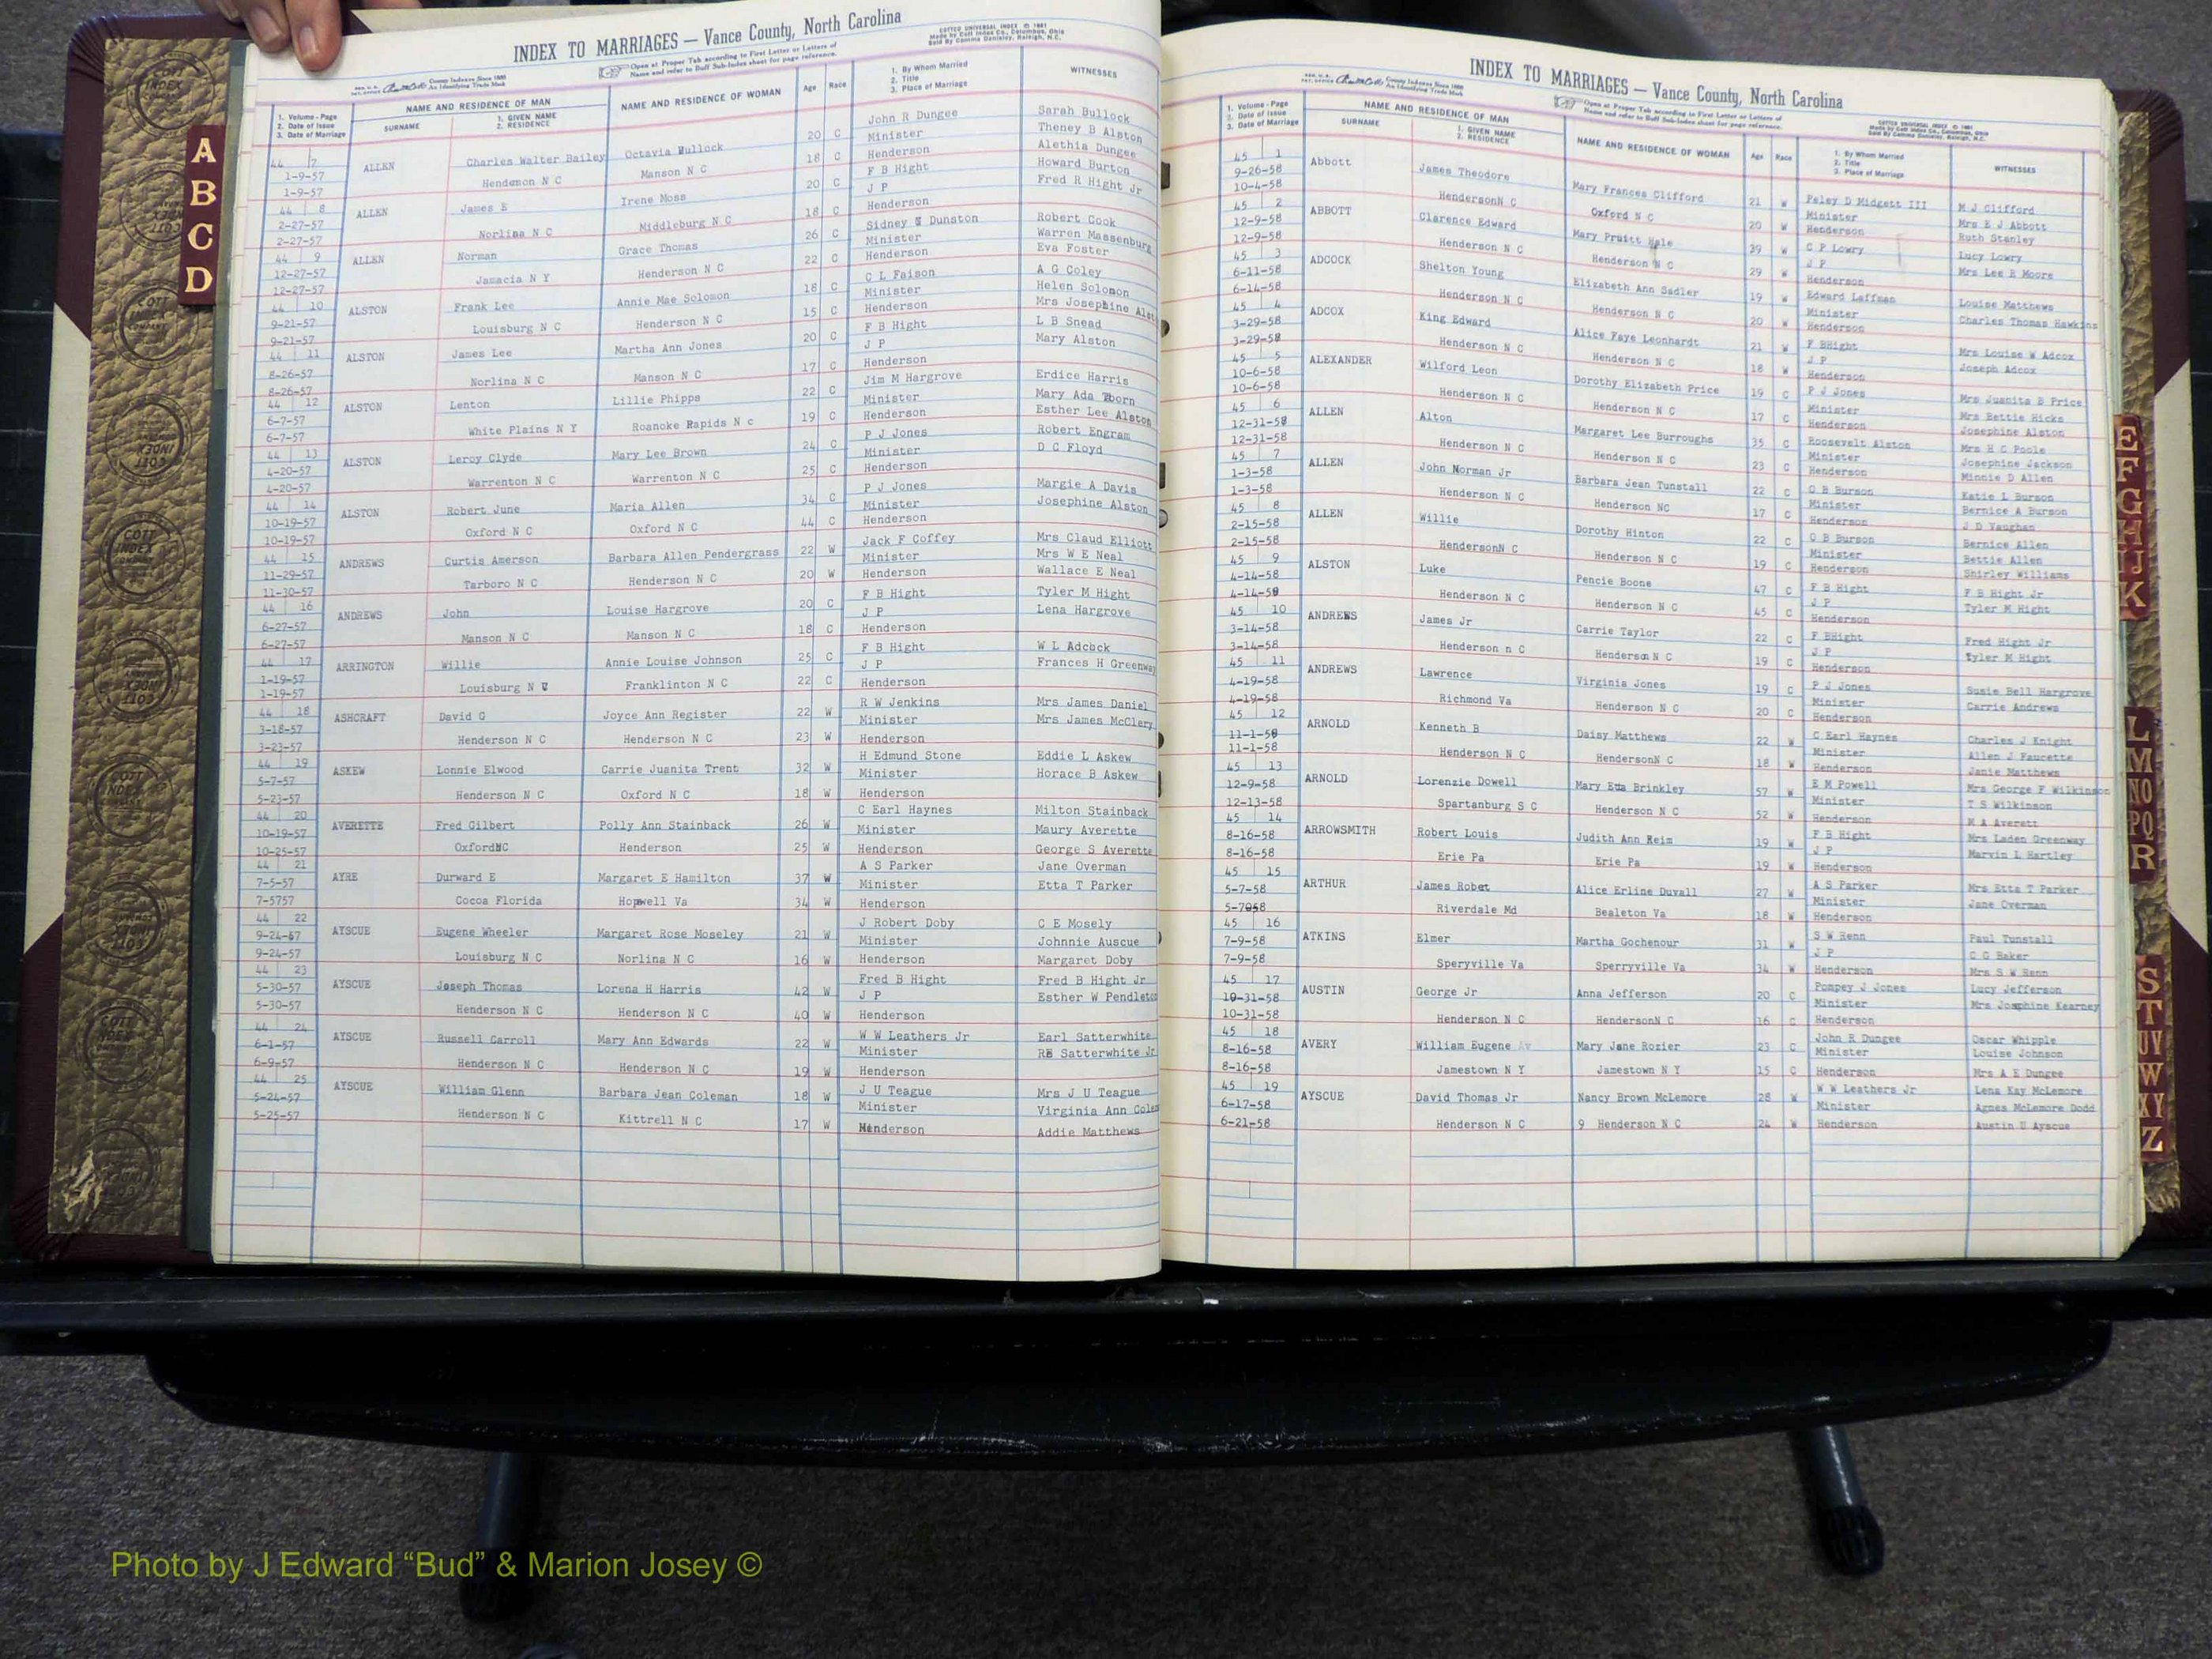 INDEX TO MARRIAGES — Vance County, North Carolina
COTTCO UNIVERSAL INDEX © 1981
Made by Cott Index Co., Columbus, Ohio
Open at Proper Tab according to First Letter or Letters of
Name and refer to Buff Sub-Index sheet for page reference.
County Indexes Since 1888
An Identifying Trade Mark
1. Volume - Page
2. Date of Issue
3. Date of Marriage
NAME AND RESIDENCE OF MAN
SURNAME
1. GIVEN NAME
2. RESIDENCE
NAME AND RESIDENCE OF WOMAN
Age Race
1. By Whom Married
2. Title
3. Place of Marriage
WITNESSES
44 7 ALLEN Charles Walter Bailey Octavia Bullock 20 C John R Dungee Sarah Bullock
1-9-57 Henderson N C Manson N C 18 C Minister Theney B Alston
1-9-57 Henderson Alethia Dungee
44 8 ALLEN James E Irene Moss 20 C F B Hight Howard Burton
2-27-57 Norlina N C Middleburg N C 18 C J P Fred R Hight Jr
2-27-57 Henderson
44 9 ALLEN Norman Grace Thomas 26 C Sidney E Dunston Robert Cook
12-27-57 Jamacia N Y Henderson N C 22 C Minister Warren Massenburg
12-27-57 Henderson Eva Foster
44 10 ALSTON Frank Lee Annie Mae Solomon 18 C C L Faison A G Coley
9-21-57 Louisburg N C Henderson N C 15 C Minister Helen Solomon
9-21-57 Henderson Mrs Josephine Alst
44 11 ALSTON James Lee Martha Ann Jones 20 C F B Hight L B Snead
8-26-57 Norlina N C Manson N C 17 C J P Mary Alston
8-26-57 Henderson
44 12 ALSTON Lenton Lillie Phipps 22 C Jim M Hargrove Erdice Harris
6-7-57 White Plains N Y Roanoke Rapids N c 19 C Minister Mary Ada Thorn
6-7-57 Henderson Esther Lee Alston
44 13 ALSTON Leroy Clyde Mary Lee Brown 24 C P J Jones Robert Engram
4-20-57 Warrenton N C Warrenton N C 25 C Minister D C Floyd
4-20-57 Henderson
44 14 ALSTON Robert June Maria Allen 34 C P J Jones Margie A Davis
10-19-57 Oxford N C Oxford N C 44 C Minister Josephine Alston
10-19-57 Henderson
44 15 ANDREWS Curtis Amerson Barbara Allen Pendergrass 22 W Jack F Coffey Mrs Claud Elliott
11-29-57 Tarboro N C Henderson N C 20 W Minister Mrs W E Neal
11-30-57 Henderson Wallace E Neal
44 16 ANDREWS John Louise Hargrove 20 C F B Hight Tyler M Hight
6-27-57 Manson N C Manson N C 18 C J P Lena Hargrove
6-27-57 Henderson
44 17 ARRINGTON Willie Annie Louise Johnson 25 C F B Hight W L Adcock
1-19-57 Louisburg N C Franklinton N C 22 C J P Frances H Greenway
1-19-57 Henderson
44 18 ASHCRAFT David G Joyce Ann Register 22 W R W Jenkins Mrs James Daniel
3-18-57 Henderson N C Henderson N C 23 W Minister Mrs James McClery
3-23-57 Henderson
44 19 ASKEW Lonnie Elwood Carrie Juanita Trent 32 W H Edmund Stone Eddie L Askew
5-7-57 Henderson N C Oxford N C 18 W Minister Horace B Askew
5-23-57 Henderson
44 20 AVERETTE Fred Gilbert Polly Ann Stainback 26 W C Earl Haynes Milton Stainback
10-19-57 OxfordNC Henderson 25 W Minister Maury Averette
10-25-57 Henderson George S Averette
44 21 AYRE Durward E Margaret E Hamilton 37 W A S Parker Jane Overman
7-5-57 Cocoa Florida Hopwell Va 34 W Minister Etta T Parker
7-5757 Henderson
44 22 AYSCUE Eugene Wheeler Margaret Rose Moseley 21 W J Robert Doby C E Mosely
9-24-57 Louisburg N C Norlina N C 16 W Minister Johnnie Auscue
9-24-57 Henderson Margaret Doby
44 23 AYSCUE Joseph Thomas Lorena H Harris 42 W Fred B Hight Fred B Hight Jr
5-30-57 Henderson N C Henderson N C 40 W J P Esther W Pendleto
5-30-57 Henderson
44 24 AYSCUE Russell Carroll Mary Ann Edwards 22 W W W Leathers Jr Earl Satterwhite
6-1-57 Henderson N C Henderson N C 19 W Minister RE Satterwhite Jr
6-9-57 Henderson
44 25 AYSCUE William Glenn Barbara Jean Coleman 18 W J U Teague Mrs J U Teague
5-24-57 Henderson N C Kittrell N C 17 W Minister Virginia Ann Cole
5-25-57 Henderson Addie Matthews
INDEX TO MARRIAGES — Vance County, North Carolina
Open at Proper Tab according to First Letter or Letters of
Name and refer to Buff Sub-Index sheet for page reference.
1. Volume - Page
2. Date of Issue
3. Date of Marriage
NAME AND RESIDENCE OF MAN
SURNAME
1. GIVEN NAME
2. RESIDENCE
NAME AND RESIDENCE OF WOMAN
Age Race
1. By Whom Married
2. Title
3. Place of Marriage
WITNESSES
45 1 Abbott James Theodore Mary Frances Clifford 21 W Peley D Midgett III M J Clifford
9-26-58 HendersonN C Oxford N C 20 W Minister Mrs E J Abbott
10-4-58 Henderson Ruth Stanley
45 2 ABBOTT Clarence Edward Mary Pruitt Hale 39 W C P Lowry Lucy Lowry
12-9-58 Henderson N C Henderson N C 29 W J P Mrs Lee R Moore
12-9-58 Henderson
45 3 ADCOCK Shelton Young Elizabeth Ann Sadler 19 W Edward Laffman Louise Matthews
6-11-58 Henderson N C Henderson N C 20 W Minister Charles Thomas Hawkins
6-14-58 Henderson
45 4 ADCOX King Edward Alice Faye Leonhardt 21 W F BHight Mrs Louise W Adcox
3-29-58 Henderson N C Henderson N C 18 W J P Joseph Adcox
3-29-58 Henderson
45 5 ALEXANDER Wilford Leon Dorothy Elizabeth Price 19 C P J Jones Mrs Juanita B Price
10-6-58 Henderson N C Henderson N C 17 C Minister Mrs Bettie Hicks
10-6-58 Henderson Josephine Alston
45 6 ALLEN Alton Margaret Lee Burroughs 35 C Roosevelt Alston Mrs H C Poole
12-31-58 Henderson N C Henderson N C 23 C Minister Josephine Jackson
12-31-58 Henderson Minnie D Allen
45 7 ALLEN John Norman Jr Barbara Jean Tunstall 22 C O B Burson Katie L Burson
1-3-58 Henderson N C Henderson NC 17 C Minister Bernice A Burson
1-3-58 Henderson J D Vaughan
45 8 ALLEN Willie Dorothy Hinton 22 C O B Burson Bernice Allen
2-15-58 HendersonN C Henderson N C 19 C Minister Bettie Allen
2-15-58 Henderson Shirley Williams
45 9 ALSTON Luke Pencie Boone 47 C F B Hight F B Hight Jr
4-14-58 Henderson N C Henderson N C 45 C J P Tyler M Hight
4-14-58 Henderson
45 10 ANDREWS James Jr Carrie Taylor 22 C F BHight Fred Hight Jr
3-14-58 Henderson n C Henderson N C 19 C J P Tyler M Hight
3-14-58 Henderson
45 11 ANDREWS Lawrence Virginia Jones 19 C P J Jones Susie Bell Hargrove
4-19-58 Richmond Va Henderson N C 20 C Minister Carrie Andrews
4-19-58 Henderson
45 12 ARNOLD Kenneth B Daisy Matthews 22 W C Earl Haynes Charles J Knight
11-1-58 Henderson N C HendersonN C 18 W Minister Allen J Faucette
11-1-58 Henderson Janie Matthews
45 13 ARNOLD Lorenzie Dowell Mary Etta Brinkley 57 W E M Powell Mrs George F Wilkinson
12-9-58 Spartanburg S C Henderson N C 52 W Minister T S Wilkinson
12-13-58 Henderson M A Averett
45 14 ARROWSMITH Robert Louis Judith Ann Reim 19 W F B Hight Mrs Laden Greenway
8-16-58 Erie Pa Erie Pa 19 W J P Marvin L Hartley
8-16-58 Henderson
45 15 ARTHUR James Robet Alice Erline Duvall 27 W A S Parker Mrs Etta T Parker
5-7-58 Riverdale Md Bealeton Va 18 W Minister Jane Overman
5-7058 Henderson
45 16 ATKINS Elmer Martha Gochenour 31 W S W Renn Paul Tunstall
7-9-58 Speryville Va Sperryville Va 34 W J P C G Baker
7-9-58 Henderson Mrs S W Renn
45 17 AUSTIN George Jr Anna Jefferson 20 C Pompey J Jones Lucy Jefferson
10-31-58 Henderson N C HendersonN C 16 C Minister Mrs Josphine Kearney
10-31-58 Henderson
45 18 AVERY William Eugene Mary Jane Rozier 23 C John R Dungee Oscar Whipple
8-16-58 Jamestown N Y Jamestown N Y 15 C Minister Louise Johnson
8-16-58 Henderson Mrs A E Dungee
45 19 AYSCUE David Thomas Jr Nancy Brown McLemore 28 W W W Leathers Jr Lena Kay McLemore
6-17-58 Henderson N C 9 Henderson N C 24 W Minister Agnes McLemore Dodd
6-21-58 Henderson Austin U Ayscue
A
B
C
D
E
F
G
H
IJ
K
L
M
NO
PQ
R
S
T
UV
W
XY
Z
Photo by J Edward “Bud” & Marion Josey ©